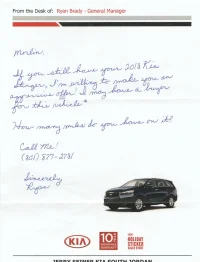 From the Desk of: Ryan Brady - General Manager
Marlin,
If you still have your 2018 Kia
Stinger, I'm willing to make you an
aggressive offer! I may have a buyer
for this vehicle*
How many miles do you have on it?
Call Me!
(801) 877-2781
Sincerely
Ryan
KIA
10
HOLIDAY
STICKER
JERRY SEINER KIA SOUTH JORDAN